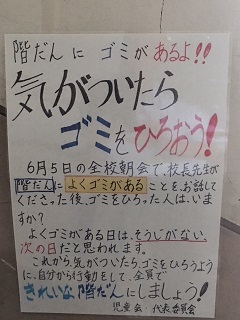 階だんに ゴミがあるよ!!
気がついたら
ゴミをひろおう!
6月5日の全校朝会で、校長先生が
階だんによくゴミがあることをお話して
くださった後、ゴミをひろった人は、いま
すか?
よくゴミがある日は、そうじがない、
次の日だと思われます。
これから、気がついたら、ゴミをひろうよう
に、自分から行動をして、全員で
きれいな階だんにしましょう!
児童会 代表委員会